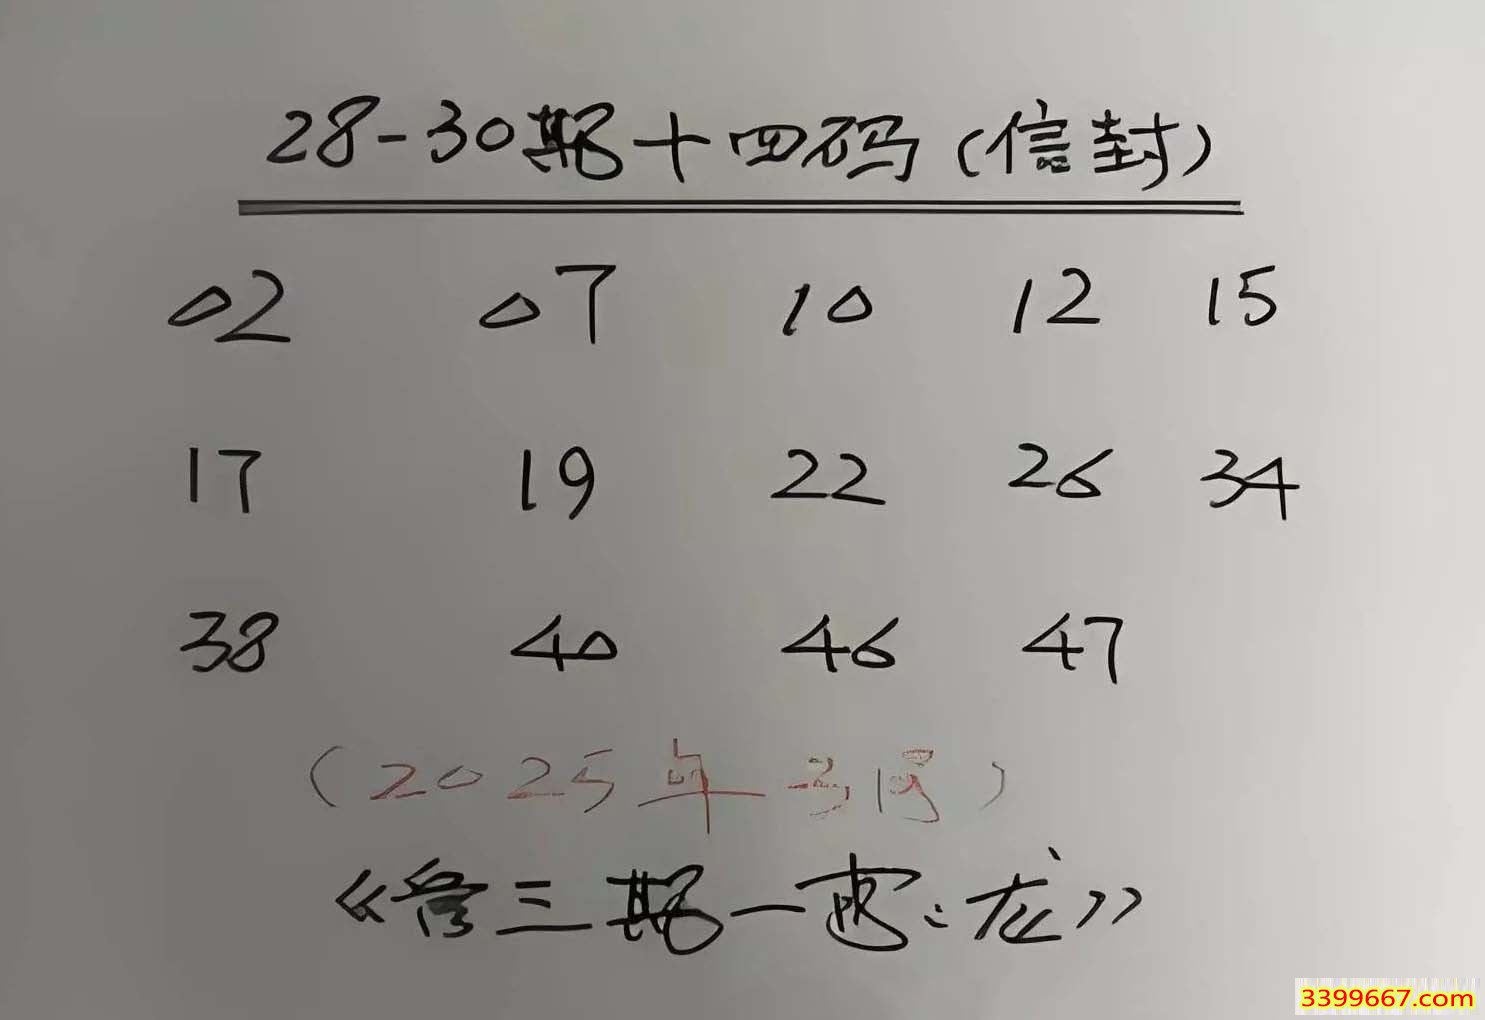 28-30期十四码(信封)
02 07 10 12 15
17 19 22 26 34
38 40 46 47
(2025年
《 三期一 :龙》
3399667.com